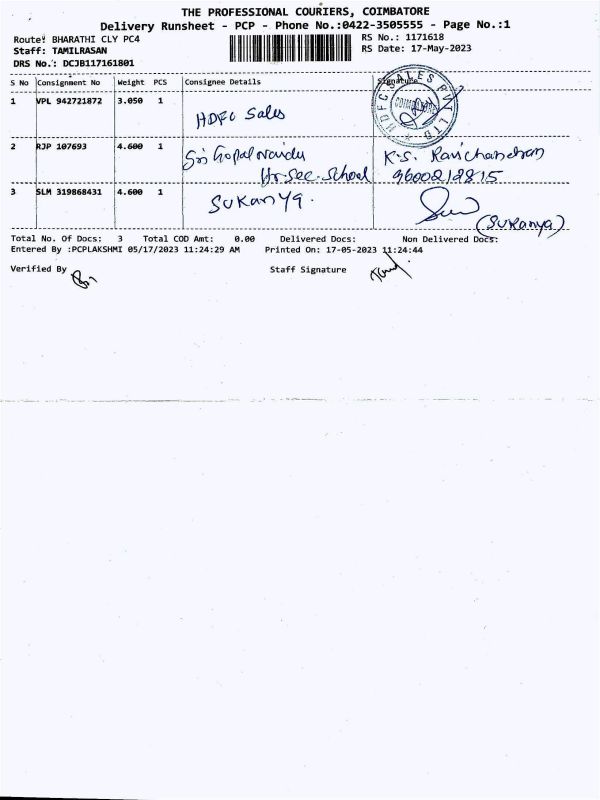 THE PROFESSIONAL COURIERS, COIMBATORE
Delivery Runsheet - PCP - Phone No.:0422-3505555 - Page No.:1
Route: BHARATHI CLY PC4
RS No.: 1171618
Staff: TAMILRASAN
RS Date: 17-May-2023
DRS No.: DCJB117161801
S No Consignment No Weight PCS Consignee Details Signature
1 VPL 942721872 3.050 1 HDFC Sales
HDFC SALES PVT LTD
COIMBATORE
2 RJP 107693 4.600 1 Sri Gopal Naidu K.S. Ravichandran
Hr. Sec. School 9600212815
3 SLM 319868431 4.600 1 SUKANYA.
(SUKanya)
Total No. Of Docs: 3 Total COD Amt: 0.00 Delivered Docs: Non Delivered Docs:
Entered By :PCPLAKSHMI 05/17/2023 11:24:29 AM Printed On: 17-05-2023 11:24:44
Verified By Staff Signature